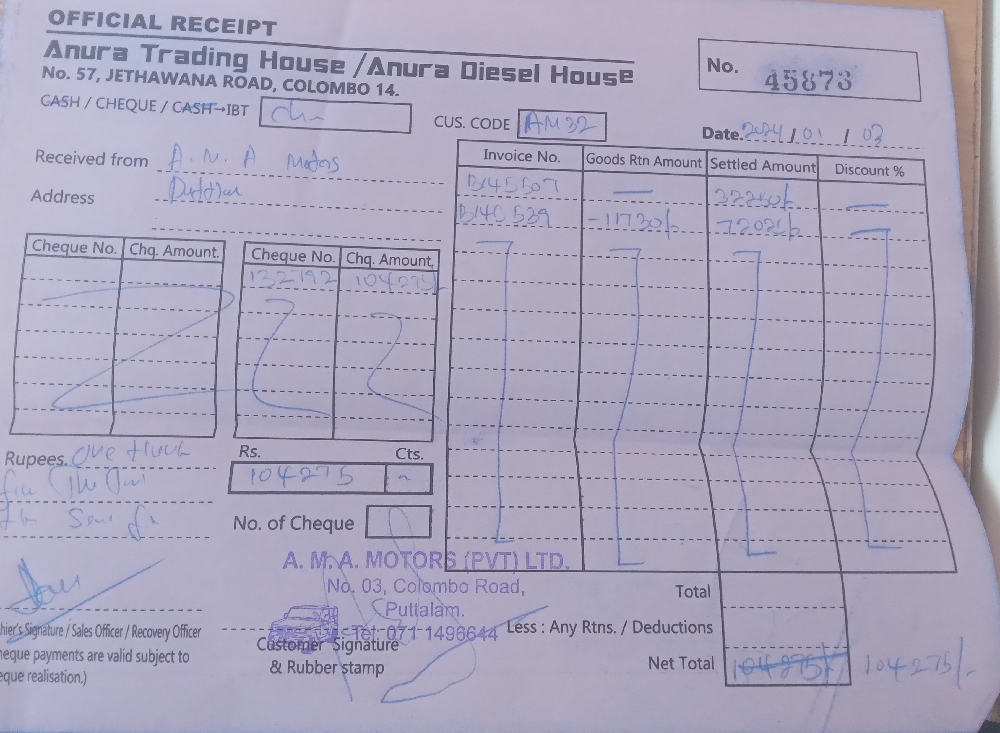 OFFICIAL RECEIPT
Anura Trading House /Anura Diesel House
No. 57, JETHAWANA ROAD, COLOMBO 14.
No. 45873
CASH / CHEQUE / CASH-IBT
CUS. CODE AM32
Date. 2024 / 01 / 03
Received from A. M. A Motors
Address
Invoice No. Goods Rtn Amount Settled Amount Discount %
B145507 — 32250/- —
B145539 -11730/- 72025/- —
Cheque No. Chq. Amount. Cheque No. Chq. Amount.
132792 104275/-
Rupees. One
Rs. Cts.
104275
No. of Cheque
A. M. A. MOTORS (PVT) LTD.
No. 03, Colombo Road,
Puttalam.
Tel: 071 1496644
hier's Signature / Sales Officer / Recovery Officer
heque payments are valid subject to
eque realisation.)
Customer Signature
& Rubber stamp
Total
Less : Any Rtns. / Deductions
Net Total 104275/- 104275/-